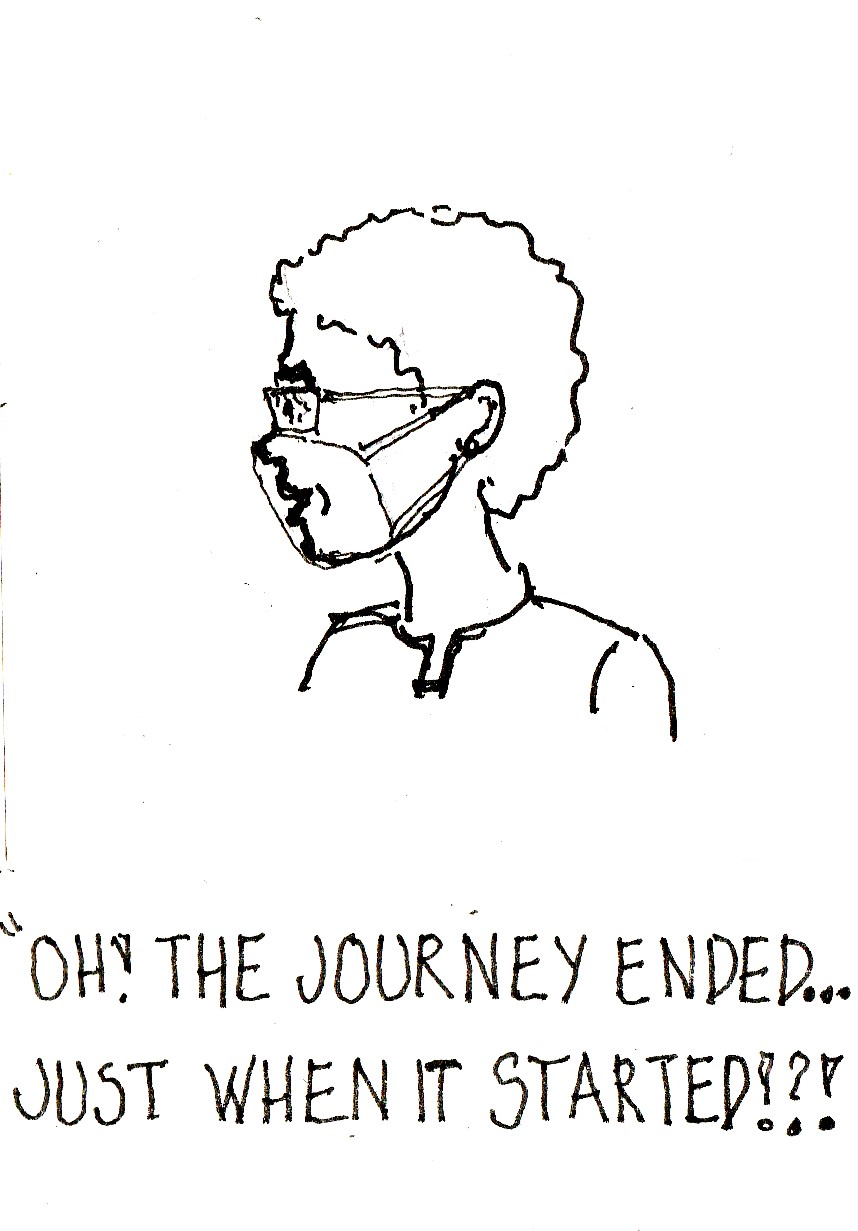 "OH! THE JOURNEY ENDED...
JUST WHEN IT STARTED!?!